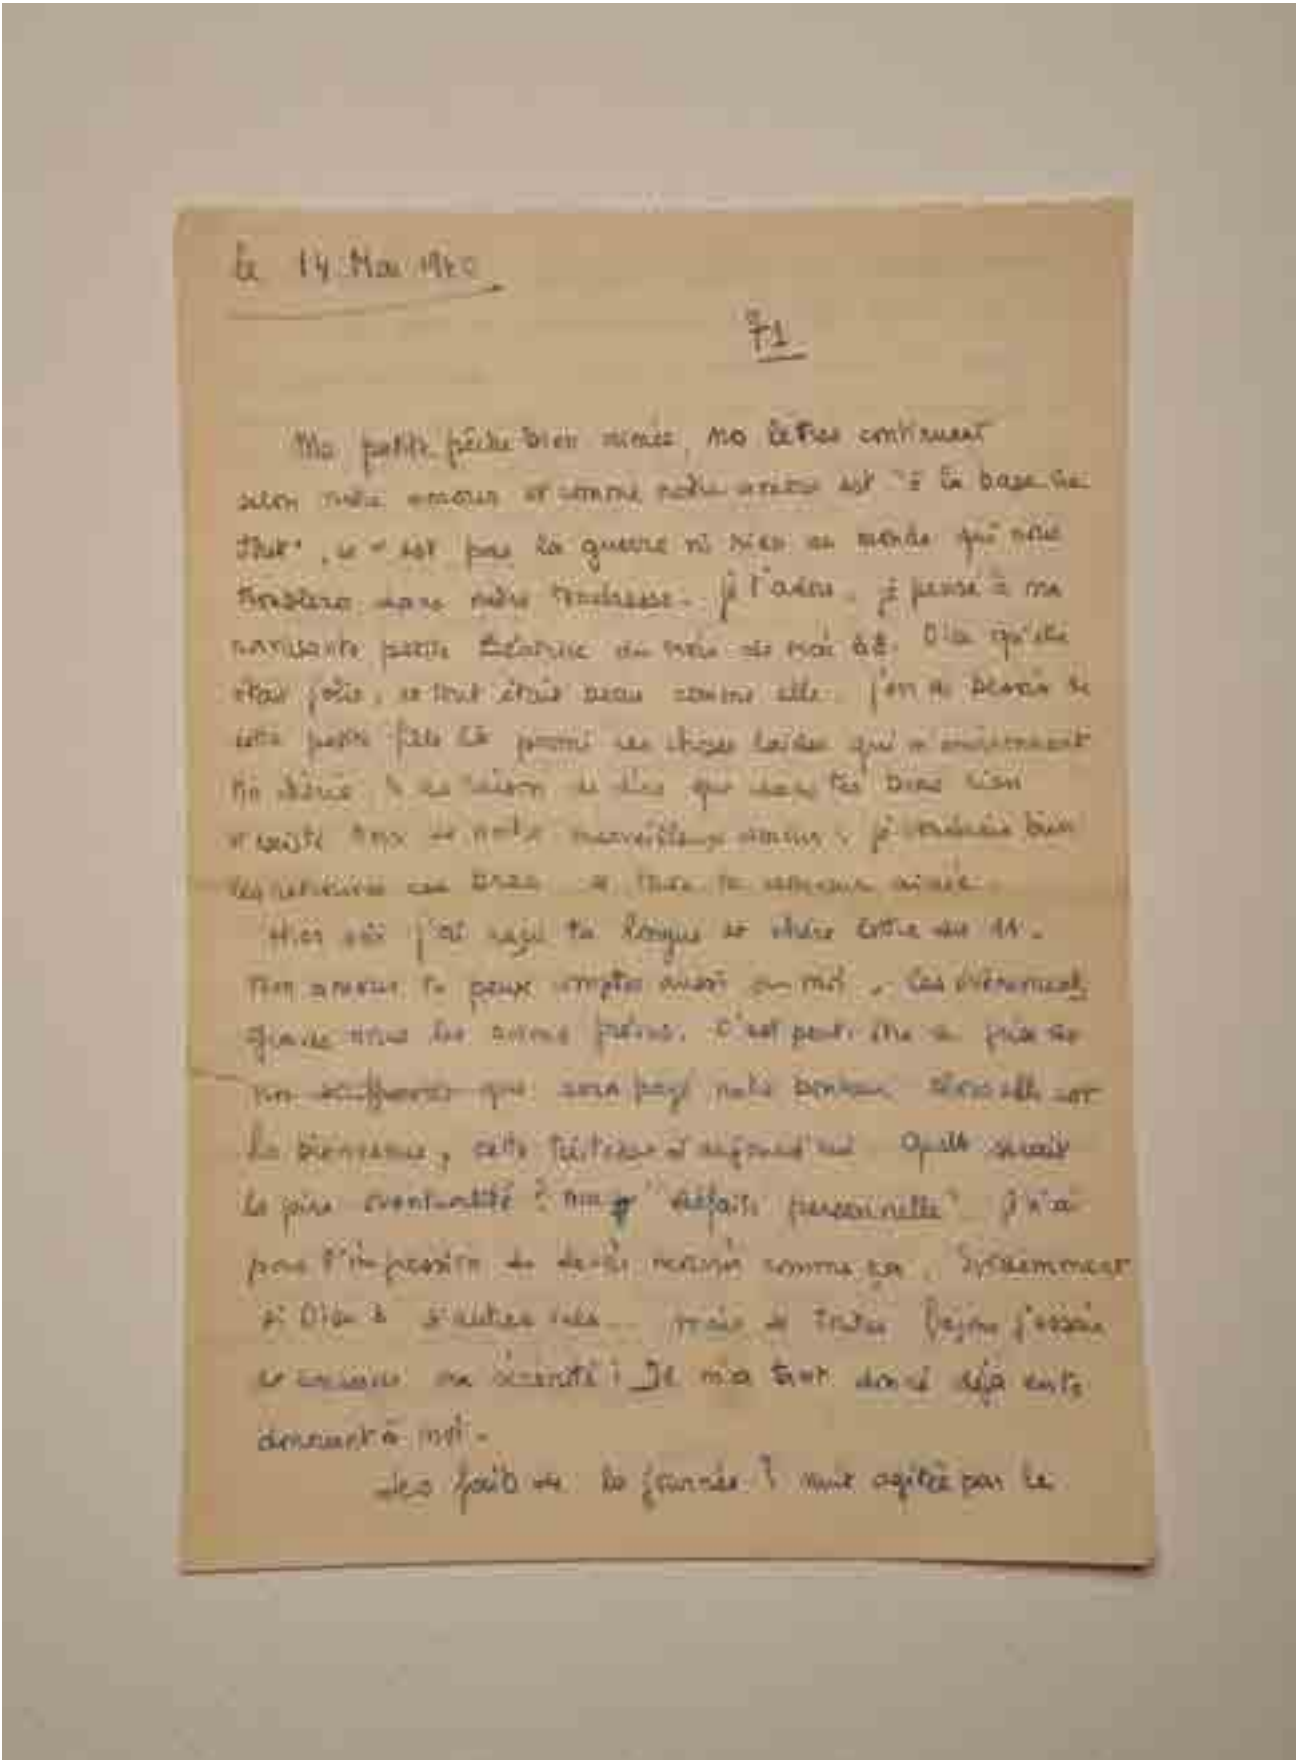 le 14 Mai 1940
71
Ma petite pêche bien aimée, no lettres continuent
selon notre amour et comme notre amour est "à la base de
tout", ce n'est pas la guerre ni rien au monde qui nous
troublera dans notre tendresse. je t'adore. je pense à ma
ravissante petite Béatrice du mois de mai 38. Dieu qu'elle
était jolie, et tout était beau comme elle. j'en ai besoin de
cette petite fille là parmi les choses laides qui m'environnent
Ma chérie tu as raison de dire que dans tes bras rien
n'existe que notre merveilleux amour. je voudrais bien
les retrouver ces bras et toute ta douceur aimée.
Hier soir j'ai reçu ta longue et chère lettre du 11.
Mon amour tu peux compter aussi sur moi. Les événements
graves nous les avions prévus. C'est peut être au prix de
nos souffrances que sera payé notre bonheur. Alors elle est
la bienvenue, cette tristesse d'aujourd'hui. Quelle serait
la pire éventualité? ma "défaite personnelle". je n'ai
pas l'impression de devoir mourir comme ça. Evidemment
si Dieu a d'autres vues... mais de toutes façons j'essaie
de conserver ma sérénité! Il m'a tant donné déjà en te
donnant à moi.
Les faits de la journée? nuit agitée par le